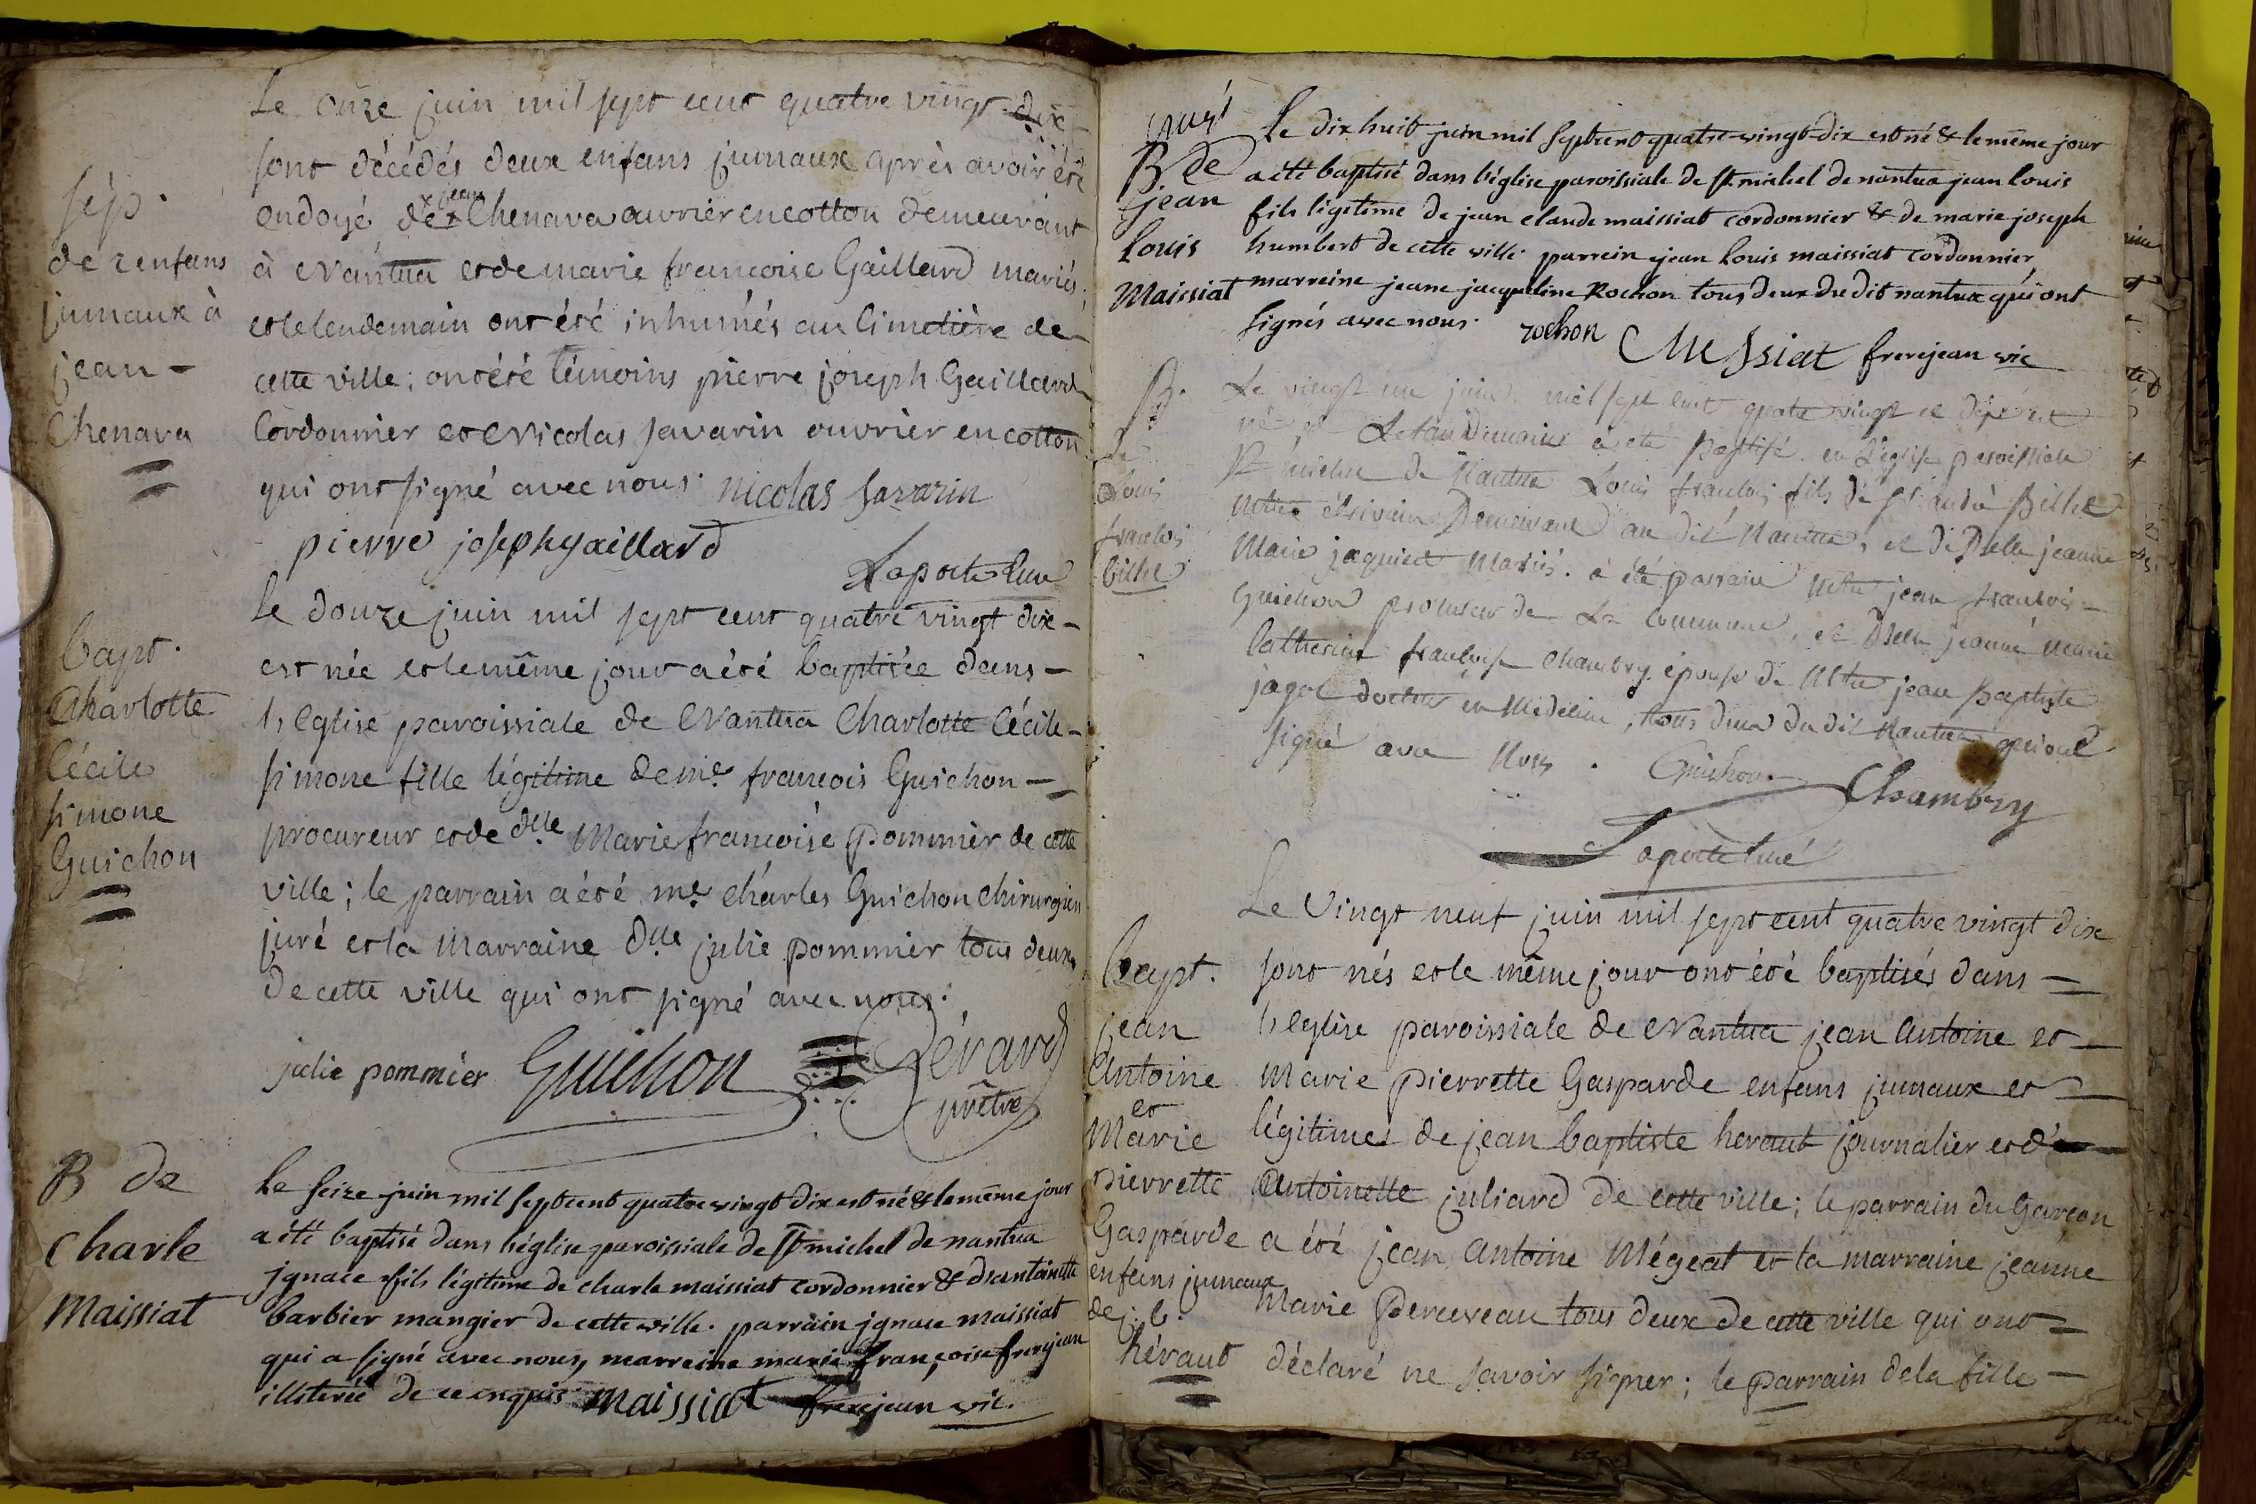 Le onze juin mil sept cent quatre vingt dix
sép.
sont décédés deux enfans jumaux après avoir été
ondoyé de x jean Chenava ouvrier en cotton demeurant
de 2 enfans
à Nantua et de marie francoise Gaillard mariés;
jumaux à
et le lendemain ont été inhumés au Cimetière de
jean -
cette ville; ont été témoins pierre joseph Gaillard
Chenava
Cordonnier et Nicolas Savarin ouvrier en cotton
qui ont signé avec nous. nicolas Savarin
pierre joseph gaillard
Laporte Curé
Le douze juin mil sept cent quatre vingt dix -
bapt.
est née et le même jour a été baptisée dans -
Charlotte
l'Eglise paroissiale de Nantua Charlotte Cécile -
Cécile
simone fille légitime de me. francois Guichon -
simone
procureur et de dlle Marie francoise pommier de cette
Guichon
ville; le parrain a été me. charles Guichon chirurgien
juré et la Marraine dlle julie pommier tous deux
de cette ville qui ont signé avec nous.
julie pommier Guichon Dérard
prêtre
B de
Le seize juin mil sept cent quatre vingt dix est né & le même jour
Charle
a été baptisé dans l'église paroissiale de St. michel de nantua
jgnace fils légitime de charle maissiat cordonnier & d'antoinette
Maissiat
barbier mangier de cette ville. parrain jgnace maissiat
qui a signé avec nous, marreine marie françoise frerejean
illiterée de ce enquis. maissiat frerejean vic.
Le dix huit juin mil sept cent quatre-vingt-dix est né & le même jour
B de
a été baptisé dans l'église paroissiale de St. michel de nantua jean louis
jean
fils légitime de jean claude maissiat cordonnier & de marie joseph
Louis
humbert de cette ville. parrein jean louis maissiat cordonnier
Maissiat
marreine jeane jacqueline Rochon tous deux du dit nantua qui ont
signés avec nous. rochon Messiat frerejean vic
B.
Le vingt un juin mil sept cent quatre vingt et dix est
né et Le lendemain a été Baptisé en L'église paroissiale
de
St michel de Nantua Louis francois fils de Sr andré Bilhe
Louis
Mtre écrivain Demeurant au dit Nantua, et de Delle jeanne
francois
Marie jaquiet Mariés. a été parrain Mtre jean francois -
bilhe
Guichon procureur de La Commune, et Delle jeanne Marie
Catherine francoise Chambry épouse de Mtre jean Baptiste
jagot docteur en Médecine, tous deux du dit Nantua qui ont
signé avec Nous. Guichon Chambry
Laporte Curé
Le Vingt neuf juin mil sept cent quatre vingt dix
bapt.
sont nés et le même jour ont été baptisés dans -
jean
l'Eglise paroissiale de Nantua jean Antoine et -
Antoine
Marie pierrette Gasparde enfans jumaux et -
et
Marie
légitimes de jean baptiste heraut journalier et d'
pierrette
Antoinette juliard de cette ville; le parrain du Garçon
Gasparde
a été jean Antoine Mégeat et la marraine jeanne
enfans jumeaux
de j. b.
Marie perceveau tous deux de cette ville qui ont -
héraut
déclaré ne savoir signer; le parrain de la fille -